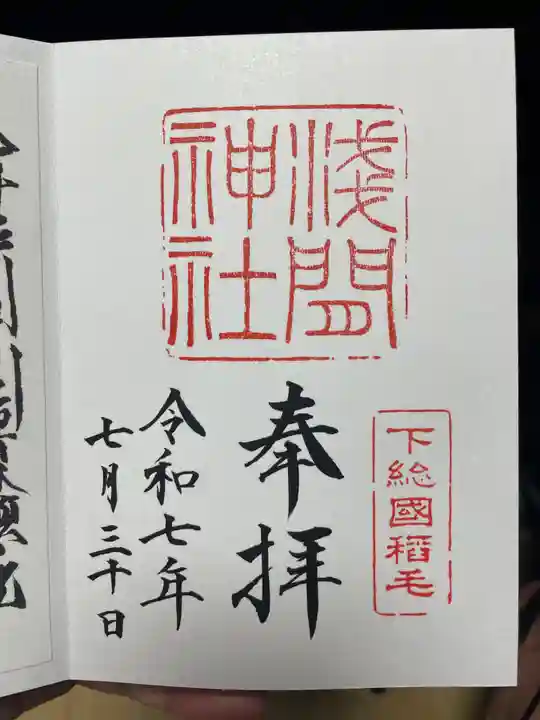 淺間
神社
下総國稻毛
奉拝
令和七年
七月三十日